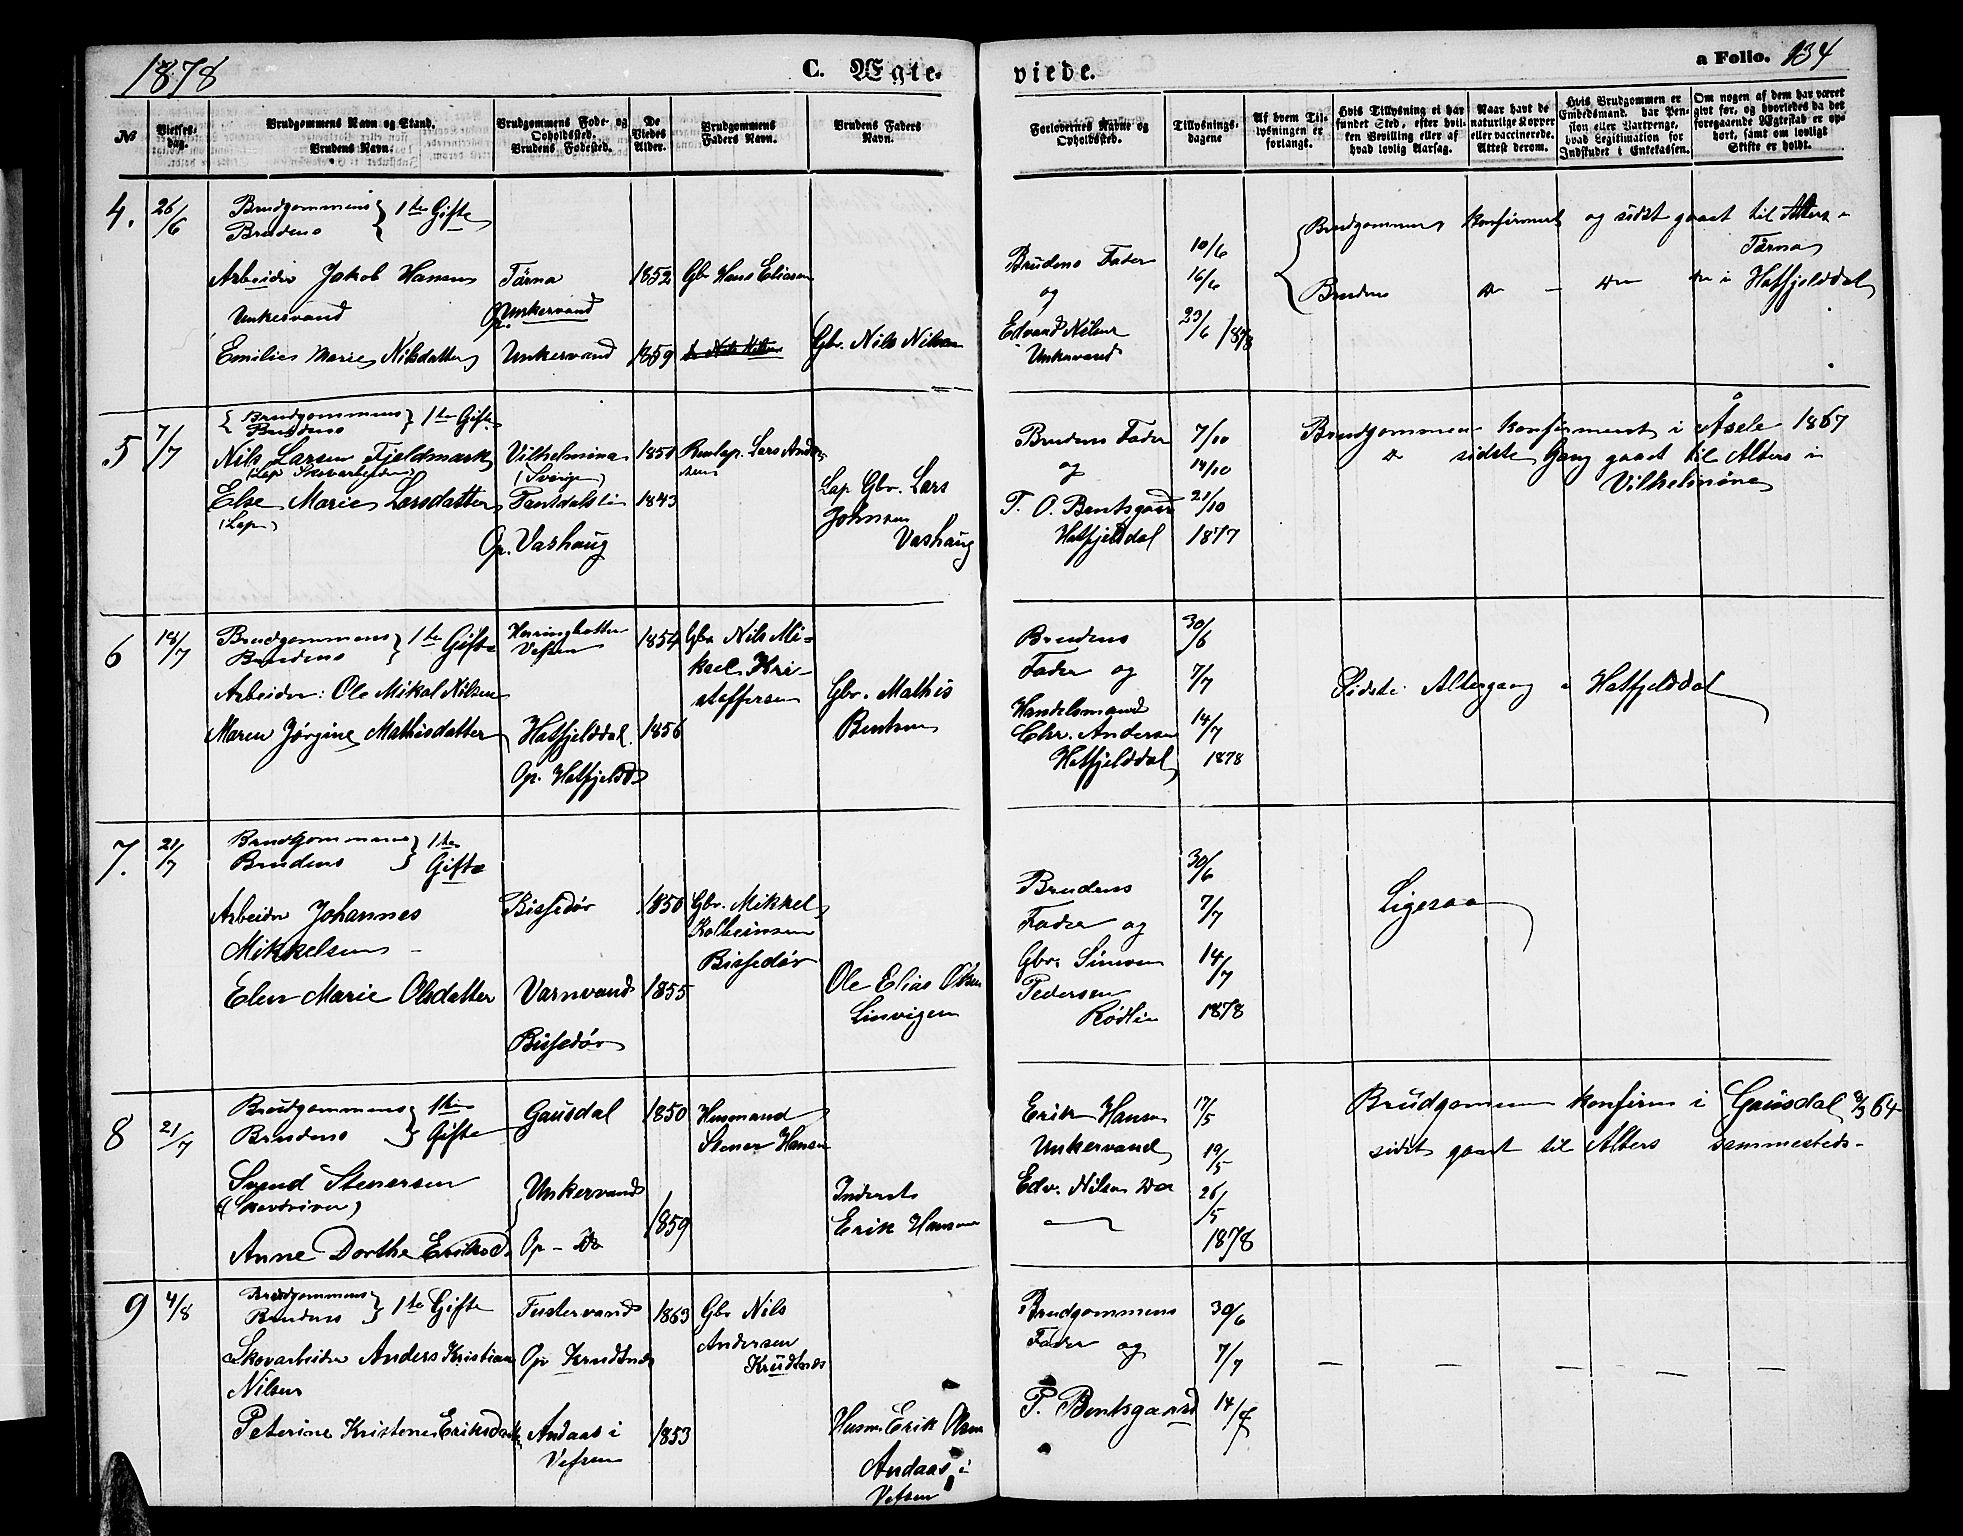 1878
C. Ægte-
viede.
a Folio. 134
№
Vielses-
dag.
Brudgommens Navn og Stand.
Brudens Navn.
Brudgommens Føde- og
Opholdssted.
Brudens Fødested.
De
Viedes
Alder.
Brudgommens
Faders Navn.
Brudens Faders
Navn.
Forlovernes Navne og
Opholdssted.
Tillysnings-
dagene
Af hvem Til-
lysningen er
forlangt.
Hvis Tillysning ei har
fundet Sted, efter hvil-
ken Bevilling eller af
hvad lovlig Aarsag.
Naar havt de
naturlige Kopper
eller vaccinerede.
Attest derom.
Hvis Brudgommen er
Embedsmand, har Pen-
sion eller Vartpenge,
hvad Legitimation for
Indskudet i Enkekassen.
Om nogen af dem har været
givt før, og hvorledes da det
foregaaende Ægteskab er op-
hørt, samt om lovligt
Skifte er holdt.
4.
26/6
Brudgommens } 1ste Gifte
Brudens
Arbeider Jakob Hansen
Unkervand
Emilie Marie Nilsdatter
Tärna
Op. Unkervand
Unkervand
1852
1859
Gbr Hans Eliasen
Gbr. Nils Nilsen
Brudens Fader
og
Edvard Nilsen
Unkervand
10/6
16/6
23/6 1878
Brudgommen konfirmert og sidst gaaet til Alters i
Tärna
Brudens Do — Do Do i Hatfjelddal
5
7/7
{ Brudgommens } 1ste Gifte
Brudens
Nils Larsen Fjeldmark
(Lap Skovarbeider)
Else Marie Larsdatter
(Lap)
Vilhelmina
(Sverige)
Op. Vashaug
1850
1843
Renlap. Lars Ander
sen
Lap Gbr. Lars
Johnsen
Vashaug
Brudens Fader
og
T. O. Bentsgaard
Hatfjelddal
7/10
14/10
21/10
1877
Brudgommen konfirmert i Åsele 1867
Do sidste Gang gaaet til Alters i
Vilhelmina
6
18/7
Brudgommens } 1ste Gifte
Brudens
Arbeider: Ole Mikal Nilsen
Maren Jørgine Mathisdatter
Herringbotten
Vefsen
Hatfjelddal.
Op. Hatfjeldd
1854
1856
Gbr Nils Mi-
kael Kri-
stoffersen
Gbr. Mathis
Bentsen
Brudens
Fader og
Handelsmand
Chr. Andersen
Hatfjelddal
30/6
7/7
14/7
1878
Sidste Altergang i Hatfjelddal
7.
21/7
Brudgommens } 1ste
Brudens Gifte
Arbeider Johannes
Mikkelsen
Elen Marie Olsdatter
Bissedør
Varnvand
Bissedør
1850
1855
Gbr. Mikkel
Kolbeinsen
Bissedør
Ole Elias Olsen
Linvigen
Brudens
Fader og
Gbr. Simon
Pedersen
Rødli
30/6
7/7
14/7
1878
Ligesaa
8
21/7
Brudgommens } 1ste
Brudens Gifte
Svend Stenersen
(Skovdriver)
Anne Dorthe Eriksd
Gausdal
Unkervand
Op — Do
1850
1859
Husmand
Stener Hansen
Inderst
Erik Hansen
Erik Hansen
Unkervand
Edv. Nilsen Do
17/5
19/5
26/5
1878
Brudgommen konfirm i Gausdal 64
sidst gaaet til Alters sammesteds-
9
4/8
Brudgommens } 1ste Gifte
Brudens
Skovarbeider Anders Kristian
Nilsen
Peterine Kristene Eriksdatter
Fustervand
Op Krudtnæs
Andaas i
Vefsen
1863
1853
Gbr Nils
Andersen
Krudtnæs
Husm. Erik Olsen
Andaas i
Vefsen
Brudgommens
Fader og
P. Bentsgaard
30/6
7/7
14/7
— — — —